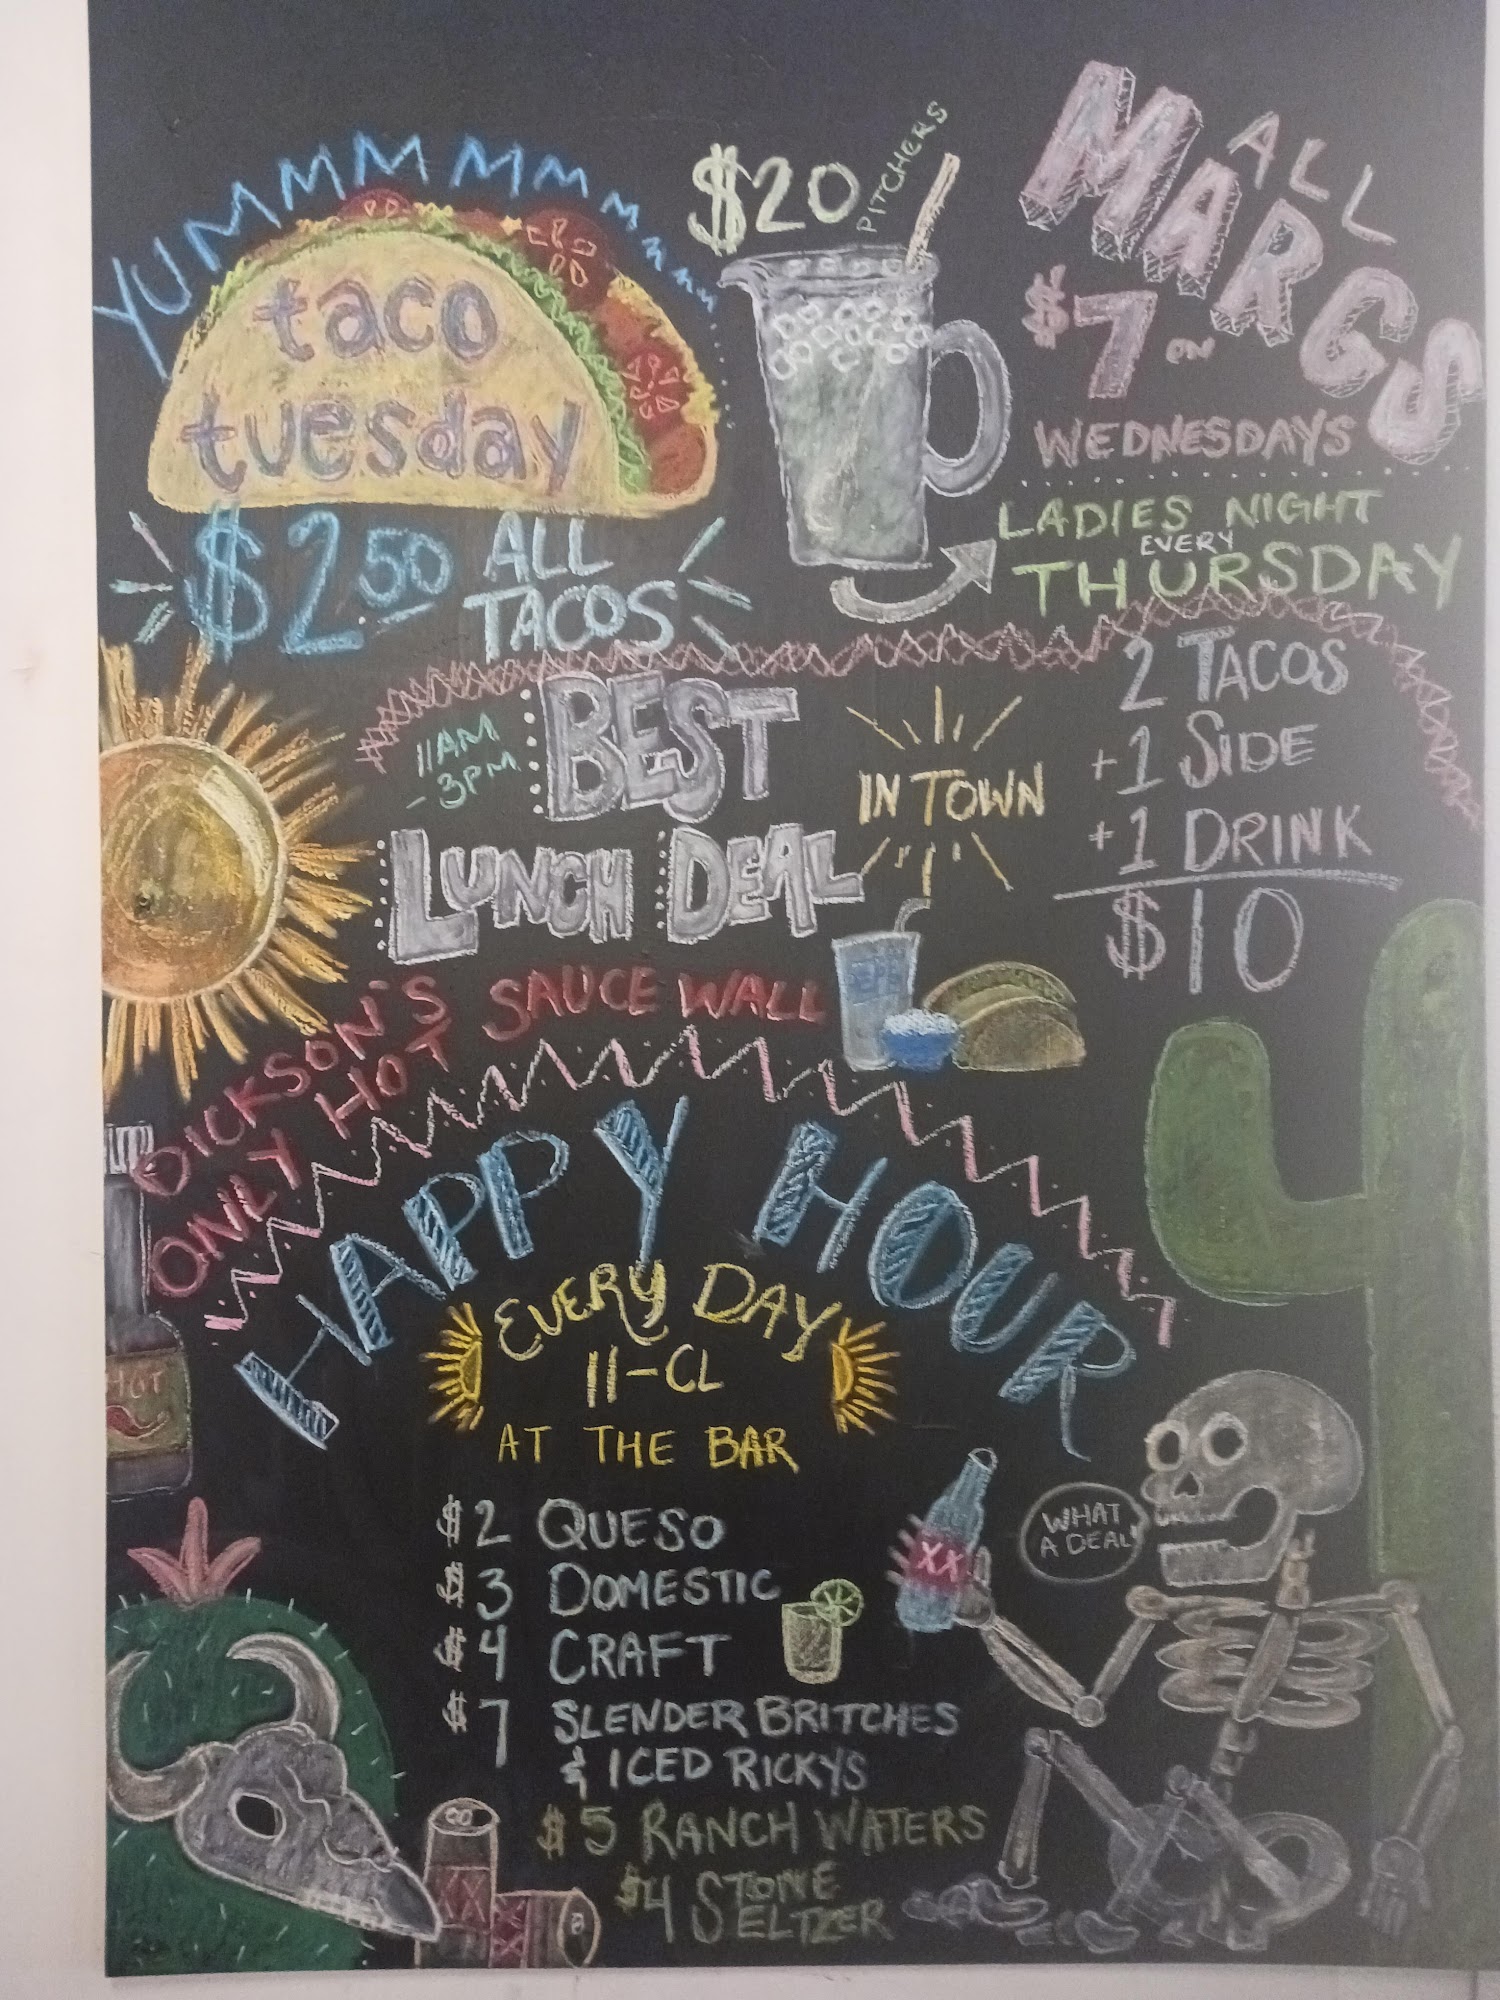 YUMMMMMMMMMMM
taco
tuesday
$2.50 ALL
TACOS
$20 PITCHERS
ALL
MARGS
$7 ON
WEDNESDAYS
LADIES NIGHT
EVERY
THURSDAY
11AM
- 3PM
BEST
LUNCH DEAL
IN TOWN
2 TACOS
+1 SIDE
+1 DRINK
$10
DICKSON'S
ONLY HOT SAUCE WALL
HOT
HAPPY HOUR
EVERY DAY
11-CL
AT THE BAR
$2 QUESO
$3 DOMESTIC
$4 CRAFT
$7 SLENDER BRITCHES
& ICED RICKYS
$5 RANCH WATERS
$4 STONE
SELTZER
XX
WHAT
A DEAL!
XX
XX